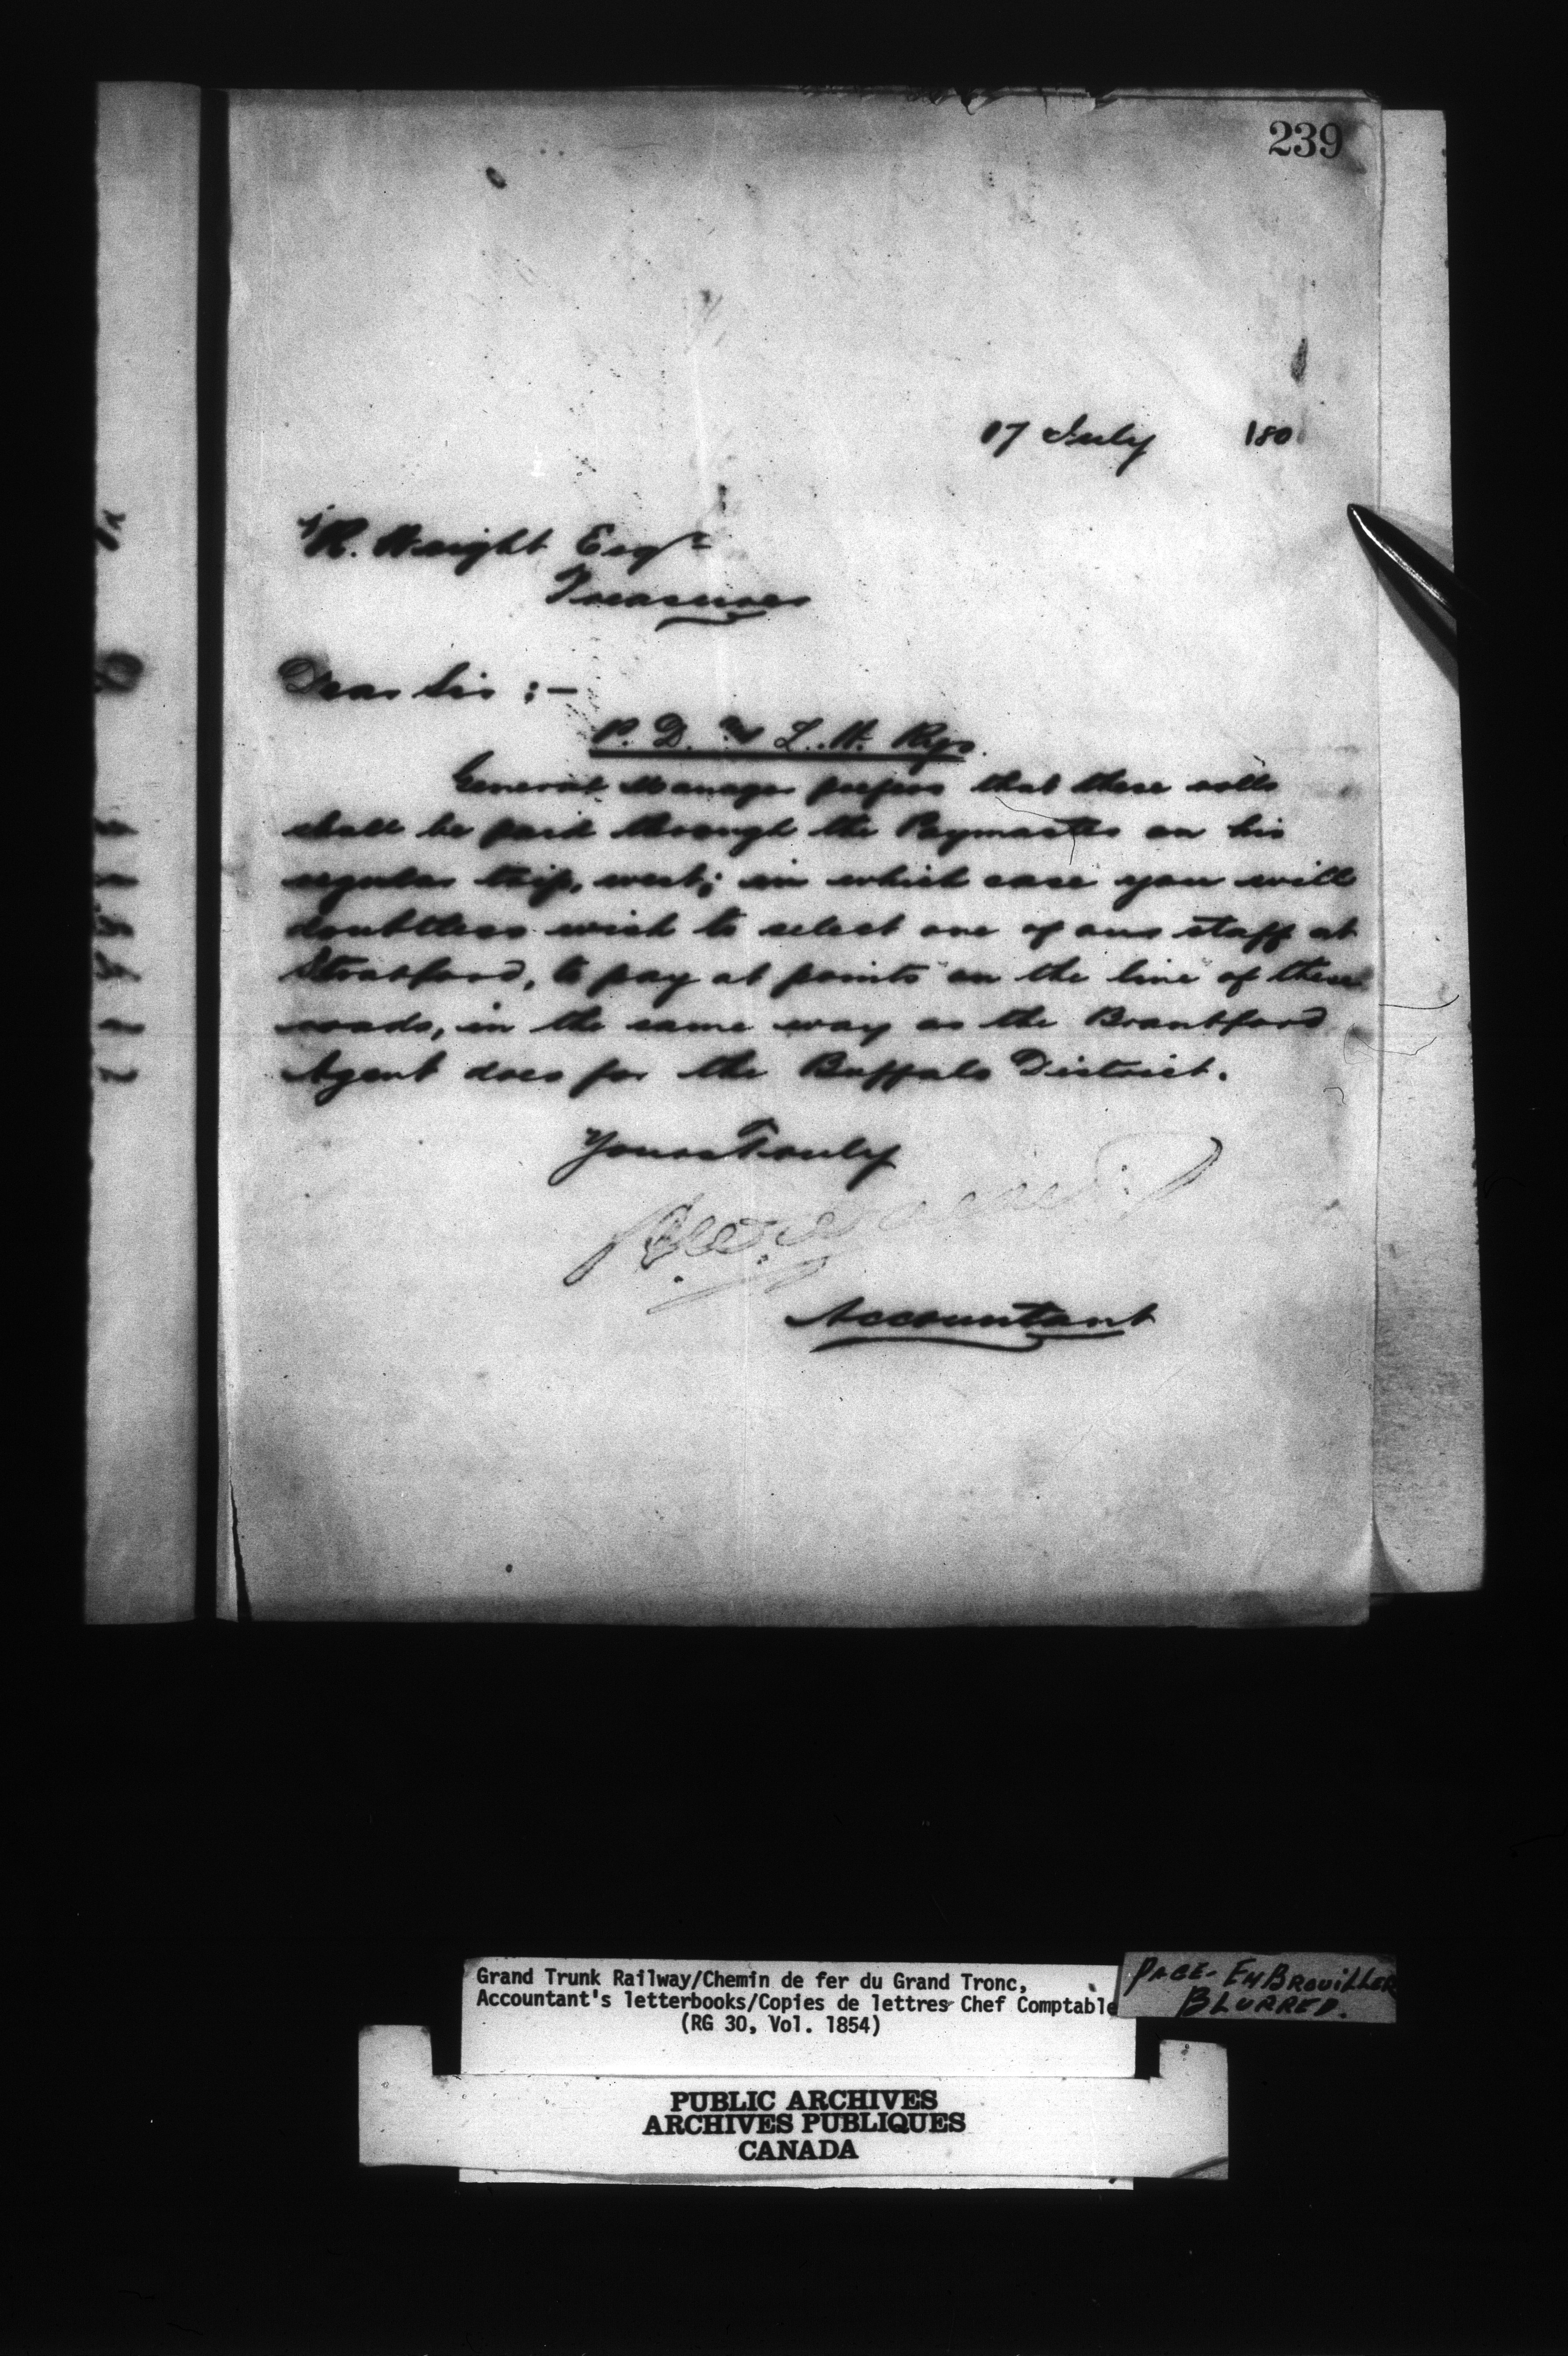 239
17 July 180
R. Wright Esqr
Treasurer
Dear Sir :—
P. D. & L. H. Rys.
General Manager prefers that these rolls
shall be paid through the Paymaster on his
regular trip, west; in which case you will
doubtless wish to select one of our staff at
Stratford, to pay at points on the line of these
roads, in the same way as the Brantford
Agent does for the Buffalo District.
Yours Truly
Accountant
Grand Trunk Railway/Chemin de fer du Grand Tronc,
Accountant's letterbooks/Copies de lettres Chef Comptable
(RG 30, Vol. 1854)
PAGE - EMBROUILLER
BLURRED.
PUBLIC ARCHIVES
ARCHIVES PUBLIQUES
CANADA